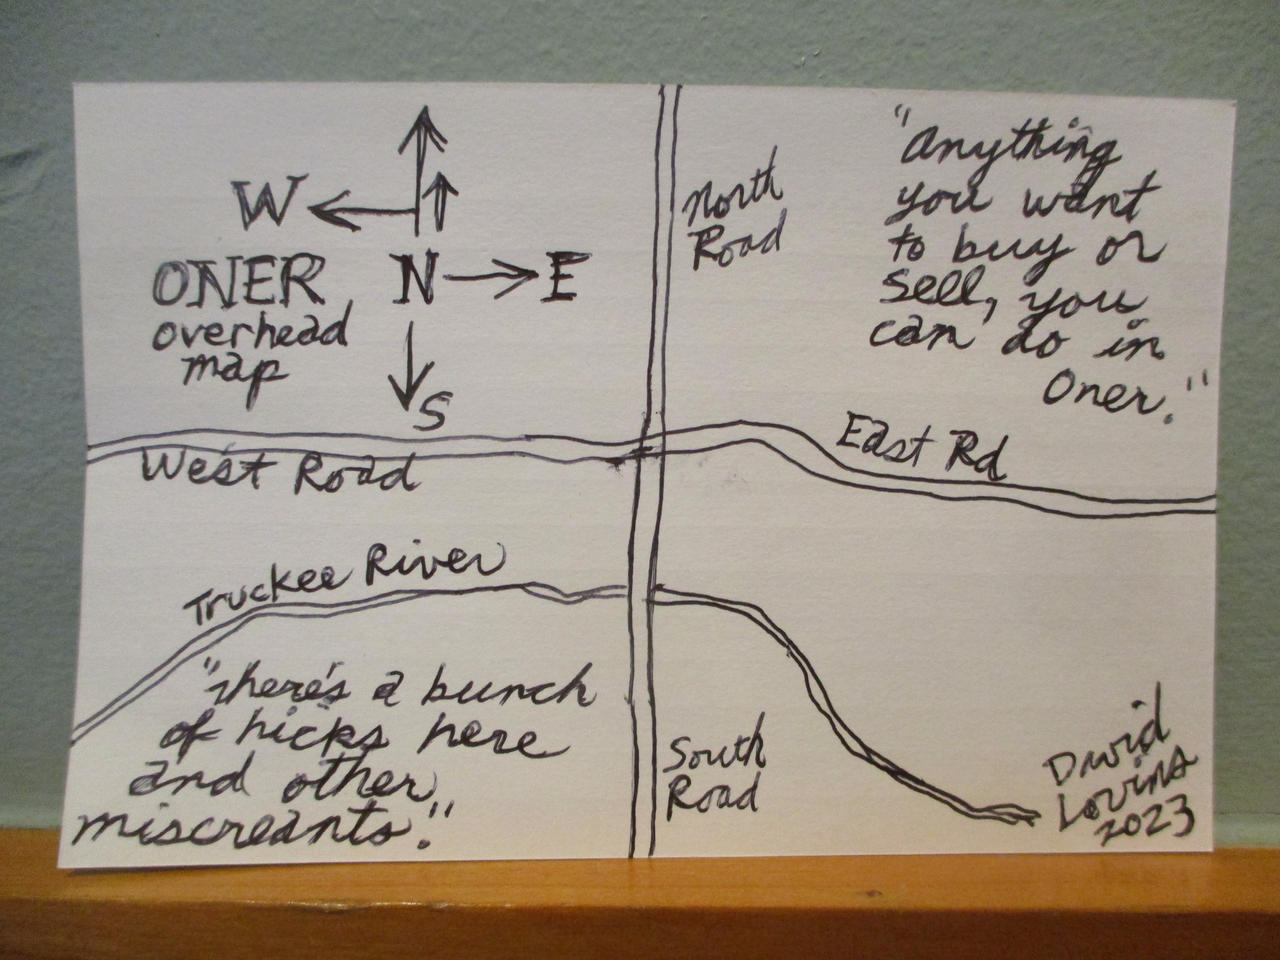 W
N
E
S
ONER
overhead
map
North
Road
"Anything
you want
to buy or
sell, you
can do in
Oner."
West Road
East Rd
Truckee River
"There's a bunch
of hicks here
and other
miscreants."
South
Road
David
Lovins
2023